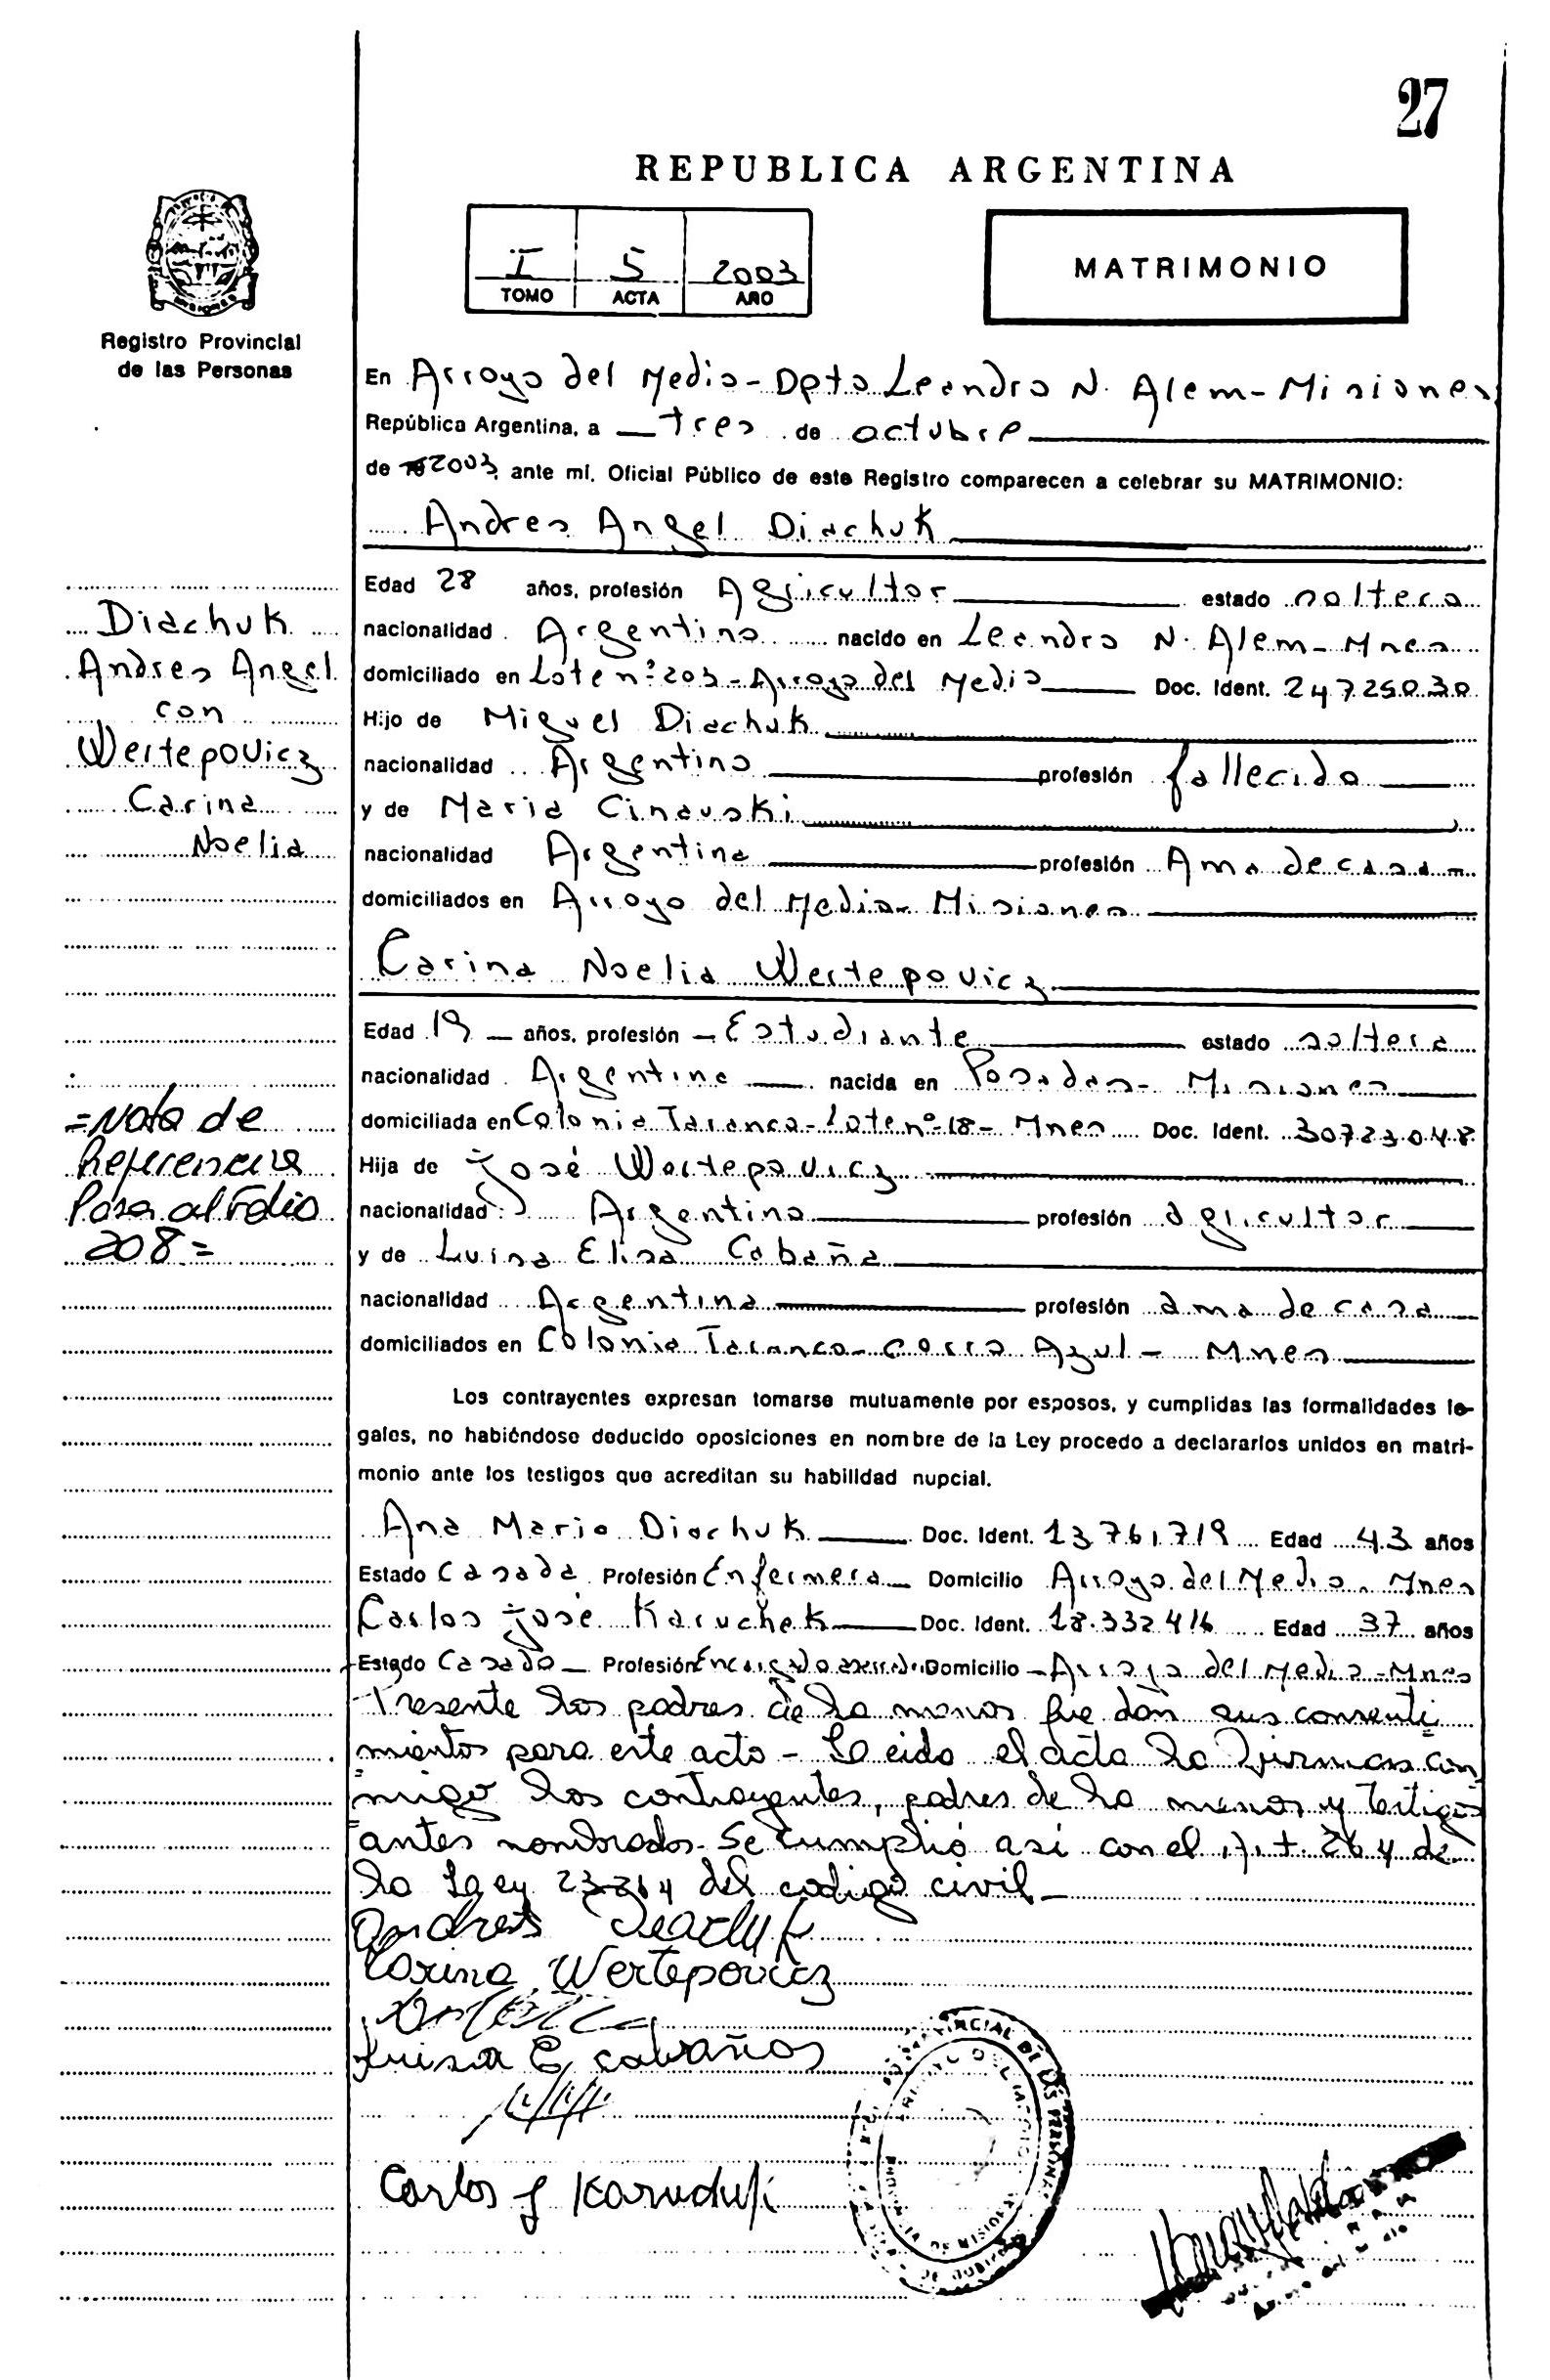 27
REPUBLICA ARGENTINA
I 5 2003
TOMO ACTA AÑO
MATRIMONIO
Registro Provincial
de las Personas
En Arroyo del Medio - Dpto Leandro N. Alem - Misiones
República Argentina, a tres de octubre
de 2003, ante mí, Oficial Público de este Registro comparecen a celebrar su MATRIMONIO:
Andres Angel Diachuk
Edad 28 años, profesión Agricultor estado soltero
nacionalidad Argentino nacido en Leandro N. Alem - Mnes
domiciliado en Lote nº 203 - Arroyo del Medio Doc. Ident. 24725030
Hijo de Miguel Diachuk
nacionalidad Argentino profesión fallecido
y de Maria Cinauski
nacionalidad Argentina profesión Ama de casa
domiciliados en Arroyo del Medio - Misiones
Carina Noelia Wertepovicz
Edad 19 años, profesión Estudiante estado soltera
nacionalidad Argentina nacida en Posadas - Misiones
domiciliada en Colonia Taranco - Lote nº 18 - Mnes Doc. Ident. 30723048
Hija de José Wertepovicz
nacionalidad Argentino profesión agricultor
y de Luisa Elisa Cabaña
nacionalidad Argentina profesión ama de casa
domiciliados en Colonia Taranco - Cerro Azul - Mnes
Diachuk
Andres Angel
con
Wertepovicz
Carina
Noelia
=Nota de
Referencia
Pasa al Folio
208=
Los contrayentes expresan tomarse mutuamente por esposos, y cumplidas las formalidades le-
gales, no habiéndose deducido oposiciones en nombre de la Ley procedo a declararlos unidos en matri-
monio ante los testigos que acreditan su habilidad nupcial.
Ana Maria Diachuk Doc. Ident. 13761719 Edad 43 años
Estado Casada Profesión Enfermera Domicilio Arroyo del Medio - Mnes
Carlos José Karuchek Doc. Ident. 18.332.416 Edad 37 años
Estado Casado Profesión Encargado Domicilio Arroyo del Medio - Mnes
Presente los padres de la menor que dan sus consenti
mientos para este acto - Leido el acta la firman con
migo los contrayentes, padres de la menor y testigos
antes nombrados. Se cumplió asi con el Art. 264 de
la Ley 23264 del codigo civil
Andres Diachuk
Carina Wertepovicz
Luisa E cabañas
Carlos J Karuchek
PROVINCIAL DE LAS PERSONAS